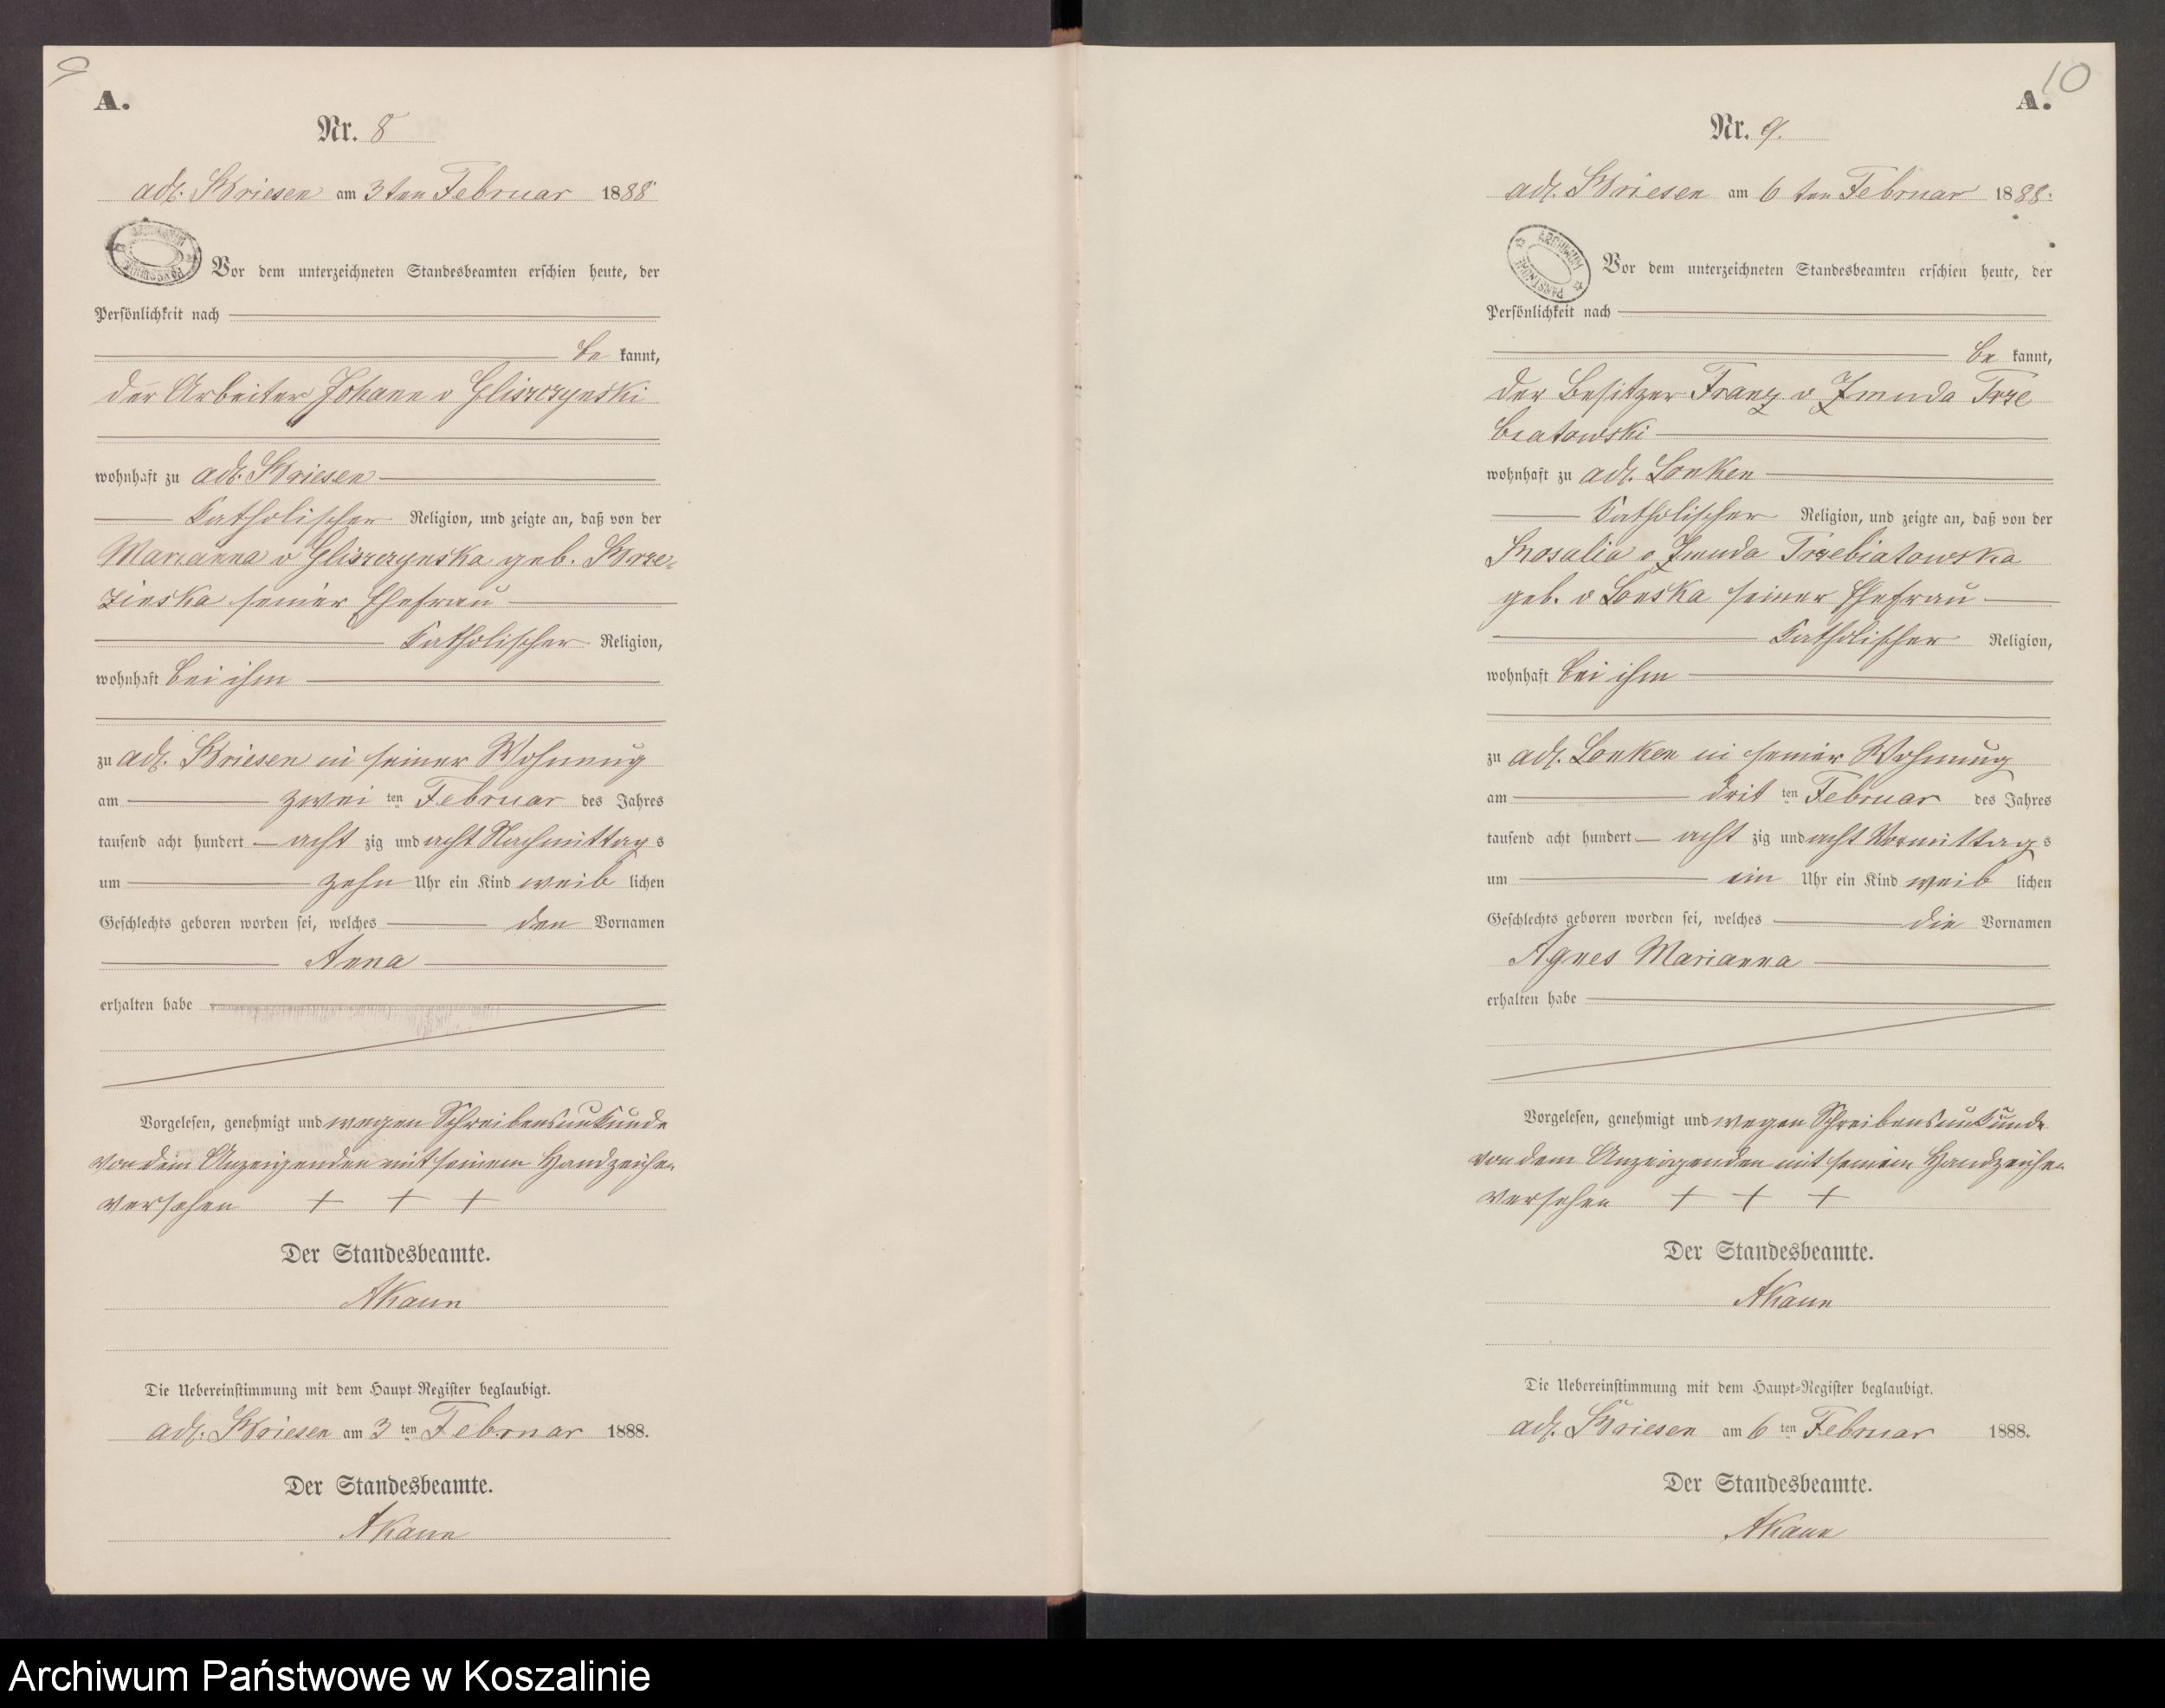 9
A.
Nr. 8
adl. Briesen am 3ten Februar 1888
ARCHIWUM PAŃSTWOWE
Vor dem unterzeichneten Standesbeamten erschien heute, der
Persönlichkeit nach
be kannt,
der Arbeiter Johann v Gliszczynski
wohnhaft zu adl. Briesen
Katholischer Religion, und zeigte an, daß von der
Marianna v Gliszczynska geb. Brze-
zinska seiner Ehefrau
Katholischer Religion,
wohnhaft bei ihm
zu adl. Briesen in seiner Wohnung
am zwei ten Februar des Jahres
tausend acht hundert acht zig und acht Nachmittag s
um zehn Uhr ein Kind weib lichen
Geschlechts geboren worden sei, welches den Vornamen
Anna
erhalten habe
Vorgelesen, genehmigt und wegen Schreibensunkunde
von dem Anzeigenden mit seinem Handzeichen
versehen + + +
Der Standesbeamte.
AKaun
Die Uebereinstimmung mit dem Haupt-Register beglaubigt.
adl. Briesen am 3 ten Februar 1888.
Der Standesbeamte.
AKaun
10
A.
Nr. 9.
adl. Briesen am 6 ten Februar 1888.
ARCHIWUM PAŃSTWOWE
Vor dem unterzeichneten Standesbeamten erschien heute, der
Persönlichkeit nach
be kannt,
der Besitzer Franz v Zmuda Trze
biatowski
wohnhaft zu adl. Lonken
Katholischer Religion, und zeigte an, daß von der
Rosalia v Zmuda Trzebiatowska
geb. v Lonska seiner Ehefrau
Katholischer Religion,
wohnhaft bei ihm
zu adl. Lonken in seiner Wohnung
am drit ten Februar des Jahres
tausend acht hundert acht zig und acht Vormittag s
um ein Uhr ein Kind weib lichen
Geschlechts geboren worden sei, welches die Vornamen
Agnes Marianna
erhalten habe
Vorgelesen, genehmigt und wegen Schreibensunkunde
von dem Anzeigenden mit seinem Handzeichen
versehen + + +
Der Standesbeamte.
AKaun
Die Uebereinstimmung mit dem Haupt-Register beglaubigt.
adl. Briesen am 6 ten Februar 1888.
Der Standesbeamte.
AKaun
Archiwum Państwowe w Koszalinie